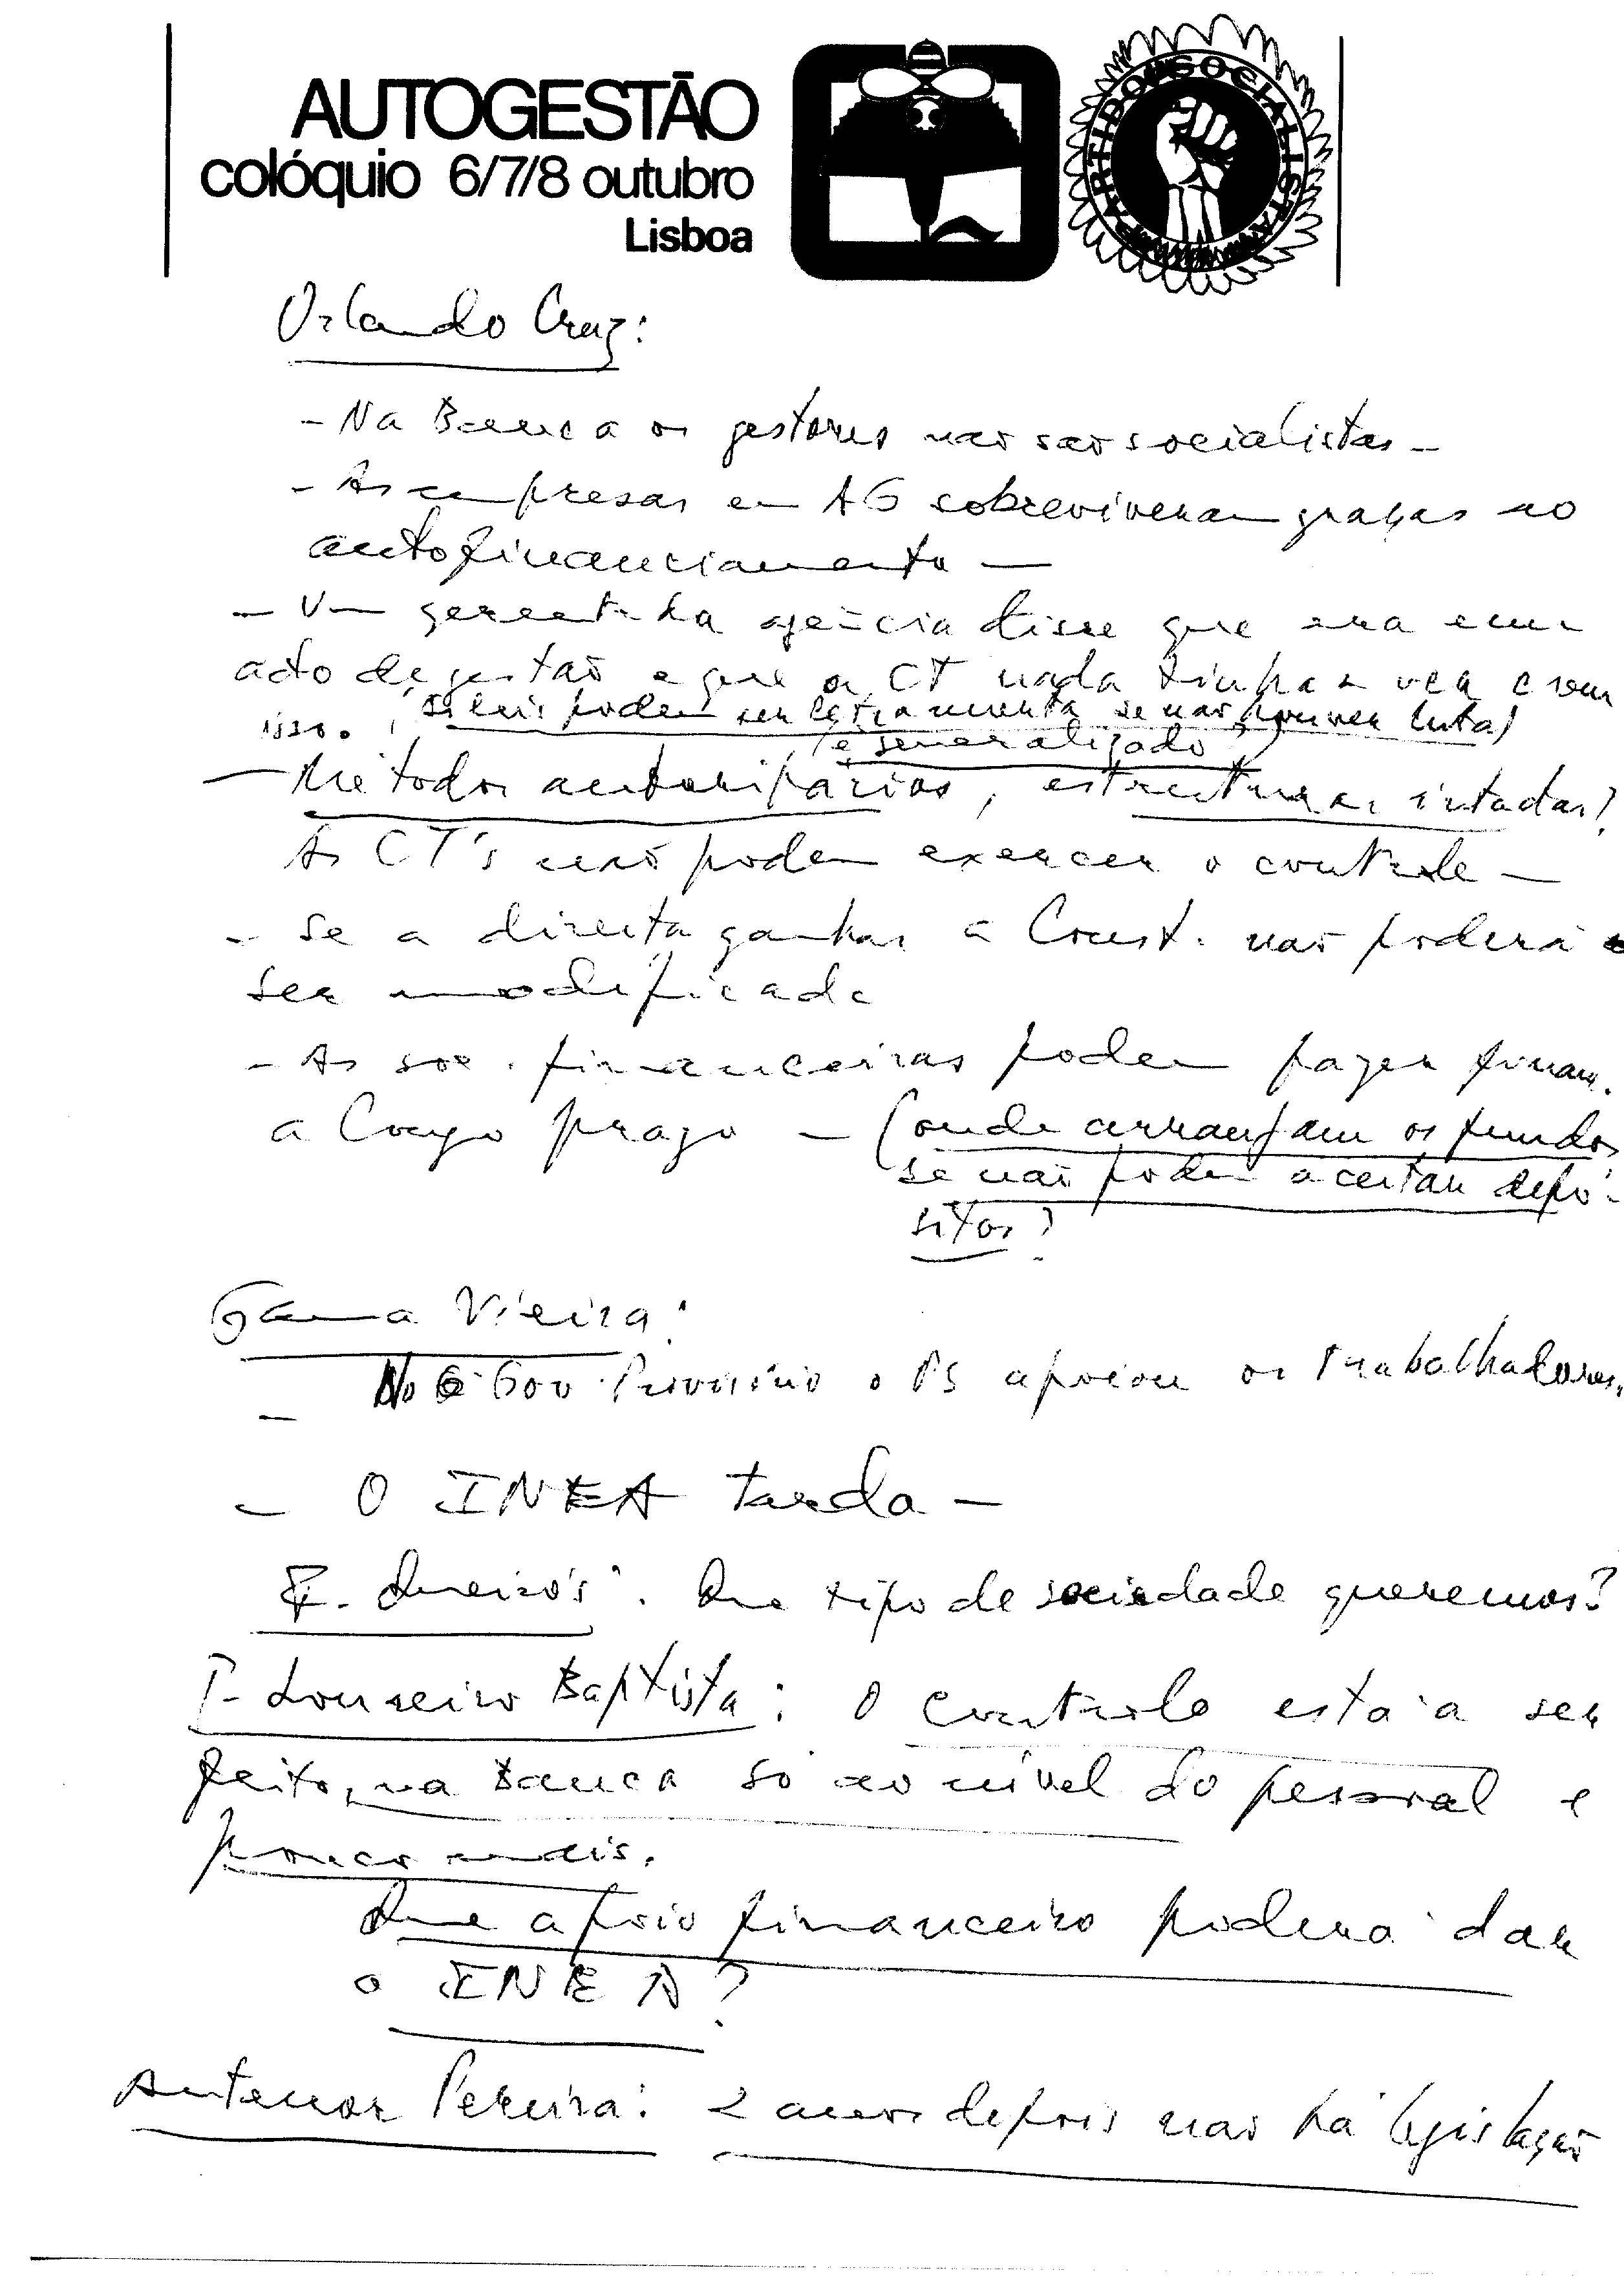 AUTOGESTÃO
colóquio 6/7/8 outubro
Lisboa
PARTIDO SOCIALISTA
Orlando Cruz:
- Na Banca os gestores não são socialistas -
- As empresas em AG sobreviveram graças ao
autofinanciamento -
- Um gerente da agência disse que era um
acto de gestão e que a CT nada tinha a ver com
isso. (as leis podem ser letra morta se não houver luta)
(é generalizado?)
- Métodos autoritários, estruturas intactas?
As CT's não podem exercer o controle -
- Se a direita ganhar a Const. não poderá
ser modificada
- As soc. financeiras podem fazer financ.
a longo prazo - (onde arranjam os fundos
se não podem aceitar depó-
sitos?
Gama Vieira:
- No 6º Gov. Provisório o PS apoiou os trabalhadores.
- O INEA tarda -
Que tipo de sociedade queremos?
Loureiro Baptista: O controlo está a ser
feito, na Banca só ao nível do pessoal e
pouco mais.
Que apoio financeiro poderá dar
o INEA?
Antenor Pereira: 2 anos depois não há legislação